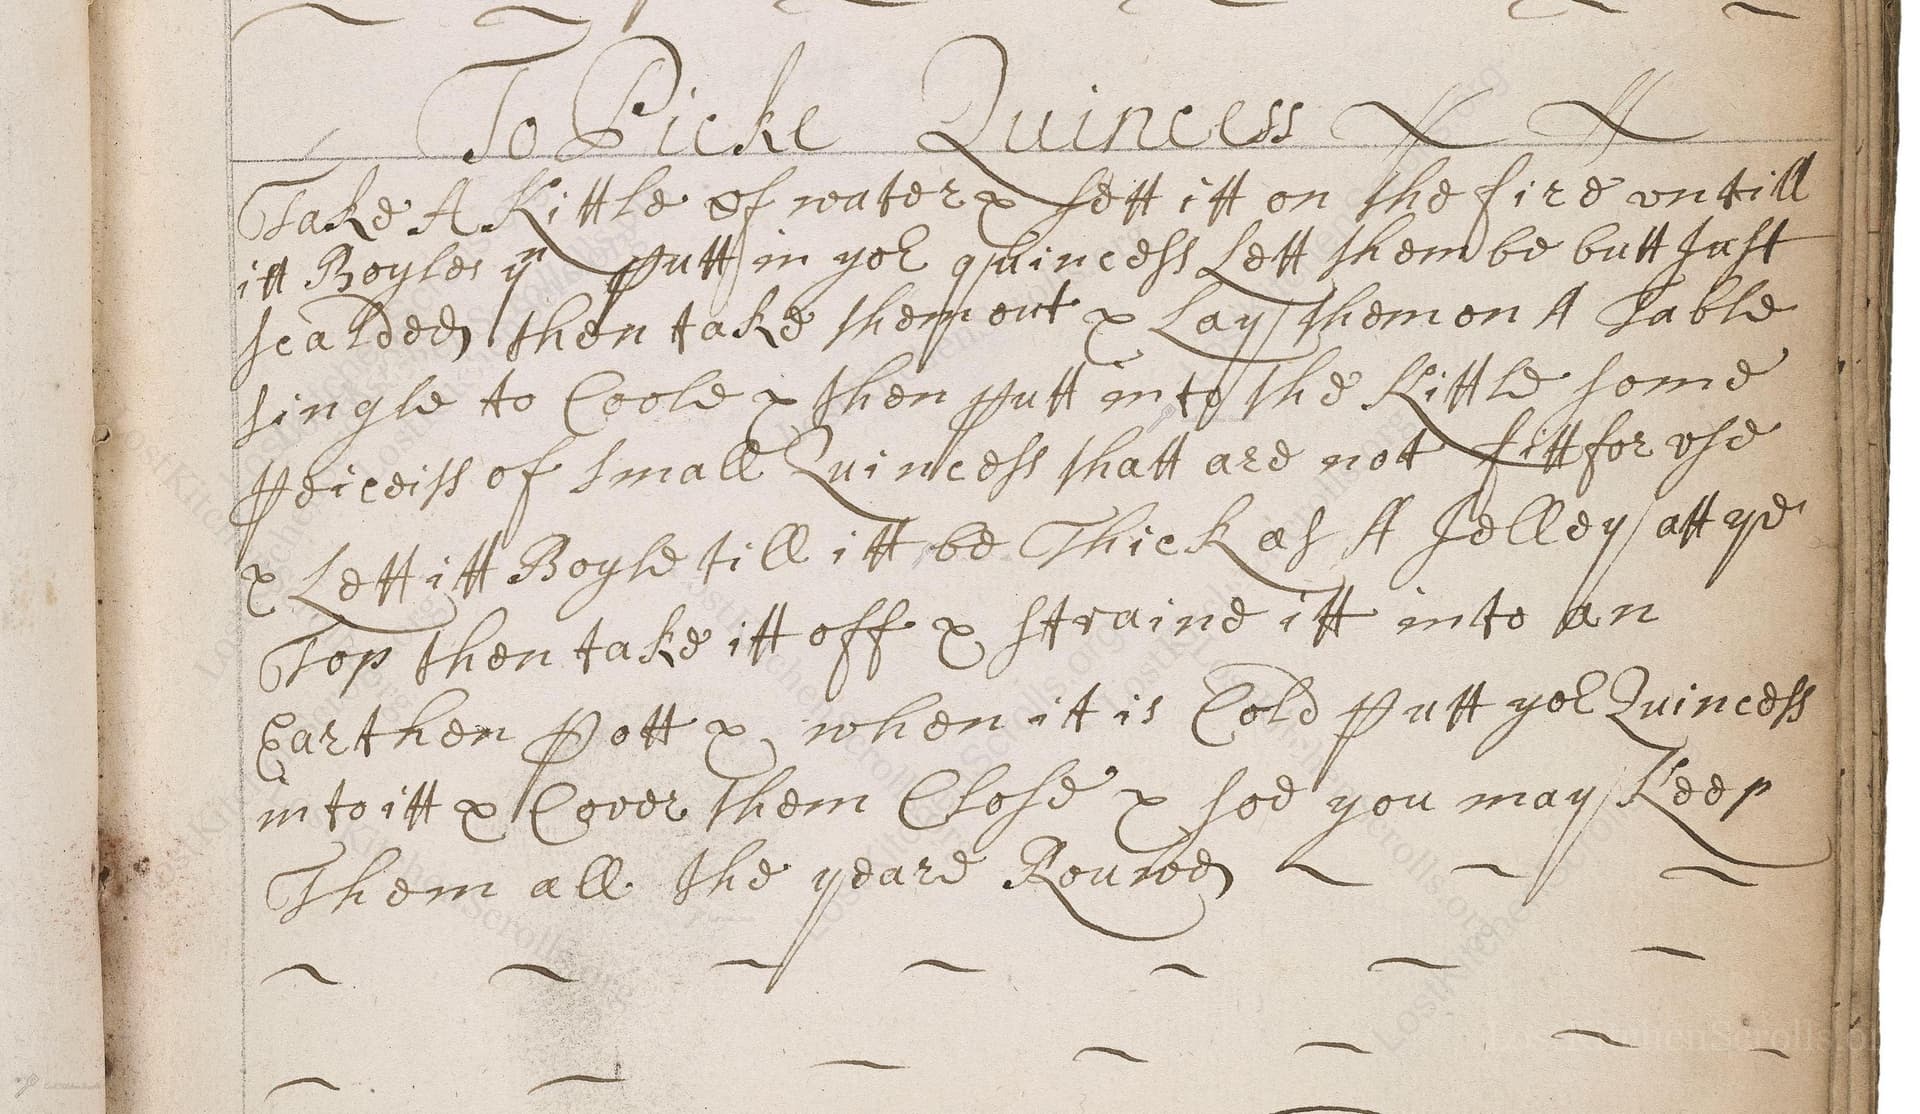 To Picke Quincess
Take A Kittle of water & sett itt on the fire vntill
itt Boyles yn putt in yor quincess Lett them be butt Just
scalded then take them out & Lay them on A Table
single to Coole & then putt into the Kittle some
peiceiss of small Quincess thatt are not fitt for vse
& Lett itt Boyle till itt be Thick as A Jelley att ye
Top then take itt off & straine itt into an
Earthen Pott & when it is Cold putt yor Quincess
into itt & Cover them Close & soe you may Keep
Them all the yeare Round